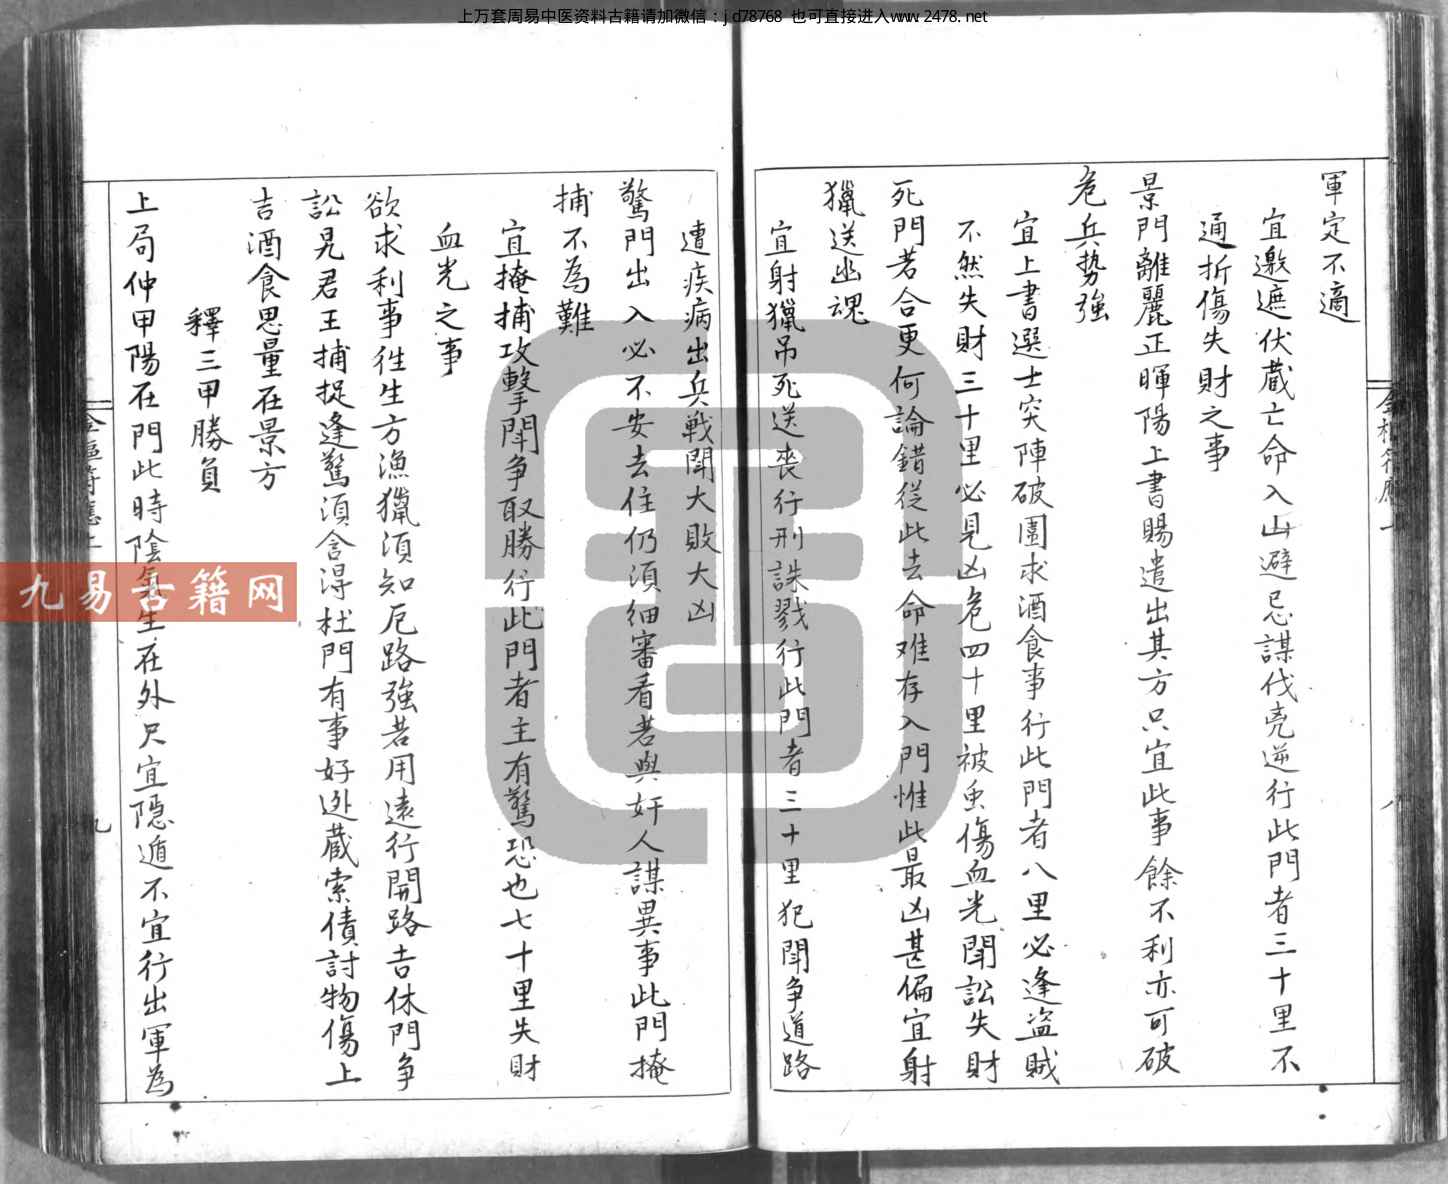 上万套周易中医资料古籍请加微信：jd78768 也可直接进入www.2478.net
軍定不適
宜邀遮伏蔵亡命入山避忌謀伐逆行此門者三十里不
通折傷失財之事
景門離麗正暉陽上書賜遣出其方只宜此事餘不利亦可破
危兵勢強
宜上書選士突陣破圍求酒食事行此門者八里必逢盗賊
不然失財三十里必見凶危四十里被虫傷血光聞訟失財
死門若合更何論錯從此去命难存入門惟此最凶甚偏宜射
獵送幽魂
宜射獵吊死送喪行刑誅戮行此門者三十里犯闘争道路
遭疾病出兵戦闘大敗大凶
驚門出入必不安去住仍須细審看若與奸人謀異事此門掩
捕不為難
宜掩捕攻擊闘争取勝行此門者主有驚恐也七十里失財
血光之事
欲求利事徃生方漁獵須知死路強若用遠行開路吉休門争
訟見君王捕捉逢驚須含淂杜門有事好迯蔵索債討物傷上
吉酒食思量在景方
釋三甲勝負
上局仲甲陽在門此時陰氣生在外只宜隠遁不宜行出軍為
九
九易古籍网